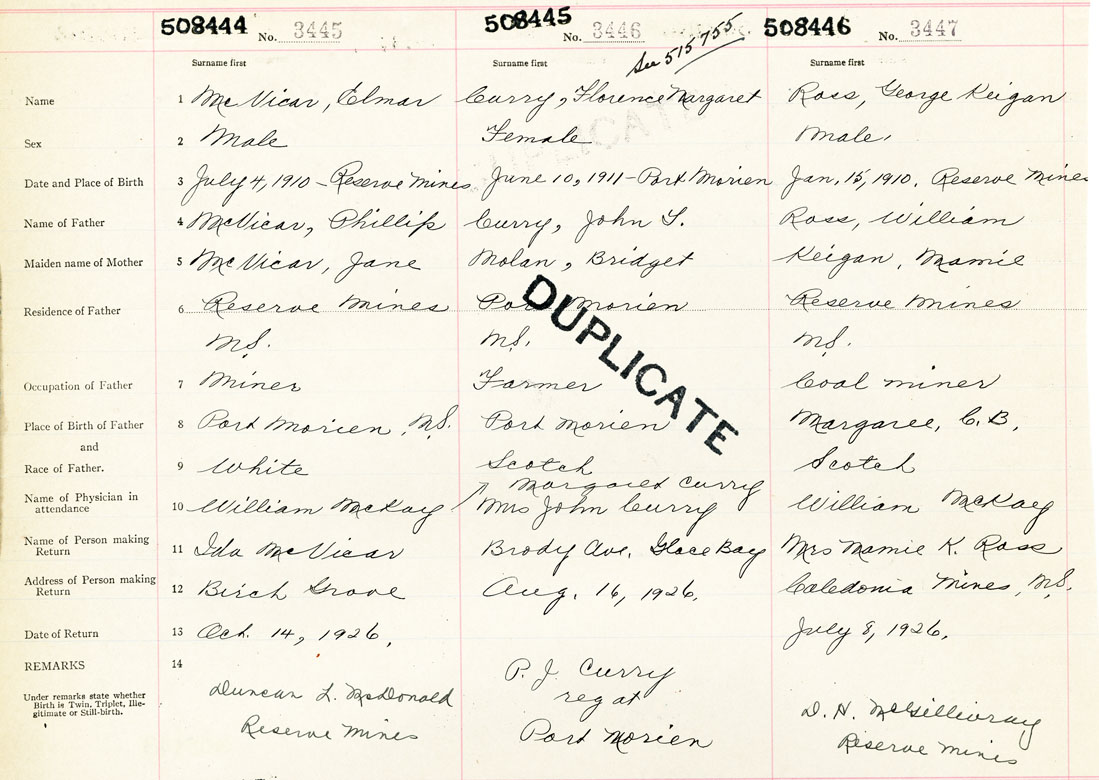 508444 No. 3445
508445 No. 3446
See 515755
508446 No. 3447
Surname first Surname first Surname first
Name 1 McVicar, Elmar Curry, Florence Margaret Ross, George Keigan
Sex 2 Male Female Male,
Date and Place of Birth 3 July 4, 1910 - Reserve Mines June 10, 1911 - Port Morien Jan, 15, 1910, Reserve Mines
Name of Father 4 McVicar, Phillip Curry, John T. Ross, William
Maiden name of Mother 5 McVicar, Jane Nolan, Bridget Keigan, Mamie
Residence of Father 6 Reserve Mines Port Morien Reserve Mines
N.S. N.S. N.S.
Occupation of Father 7 Miner Farmer Coal miner
Place of Birth of Father 8 Port Morien, N.S. Port Morien Margaree, C.B.
and
Race of Father. 9 White Scotch Scotch
Margaret Curry
Name of Physician in attendance 10 William McKay Mrs John Curry William McKay
Name of Person making Return 11 Ida McVicar Brody Ave, Glace Bay Mrs Mamie K. Ross
Address of Person making Return 12 Birch Grove Aug. 16, 1926, Caledonia Mines, N.S.
Date of Return 13 Oct. 14, 1926, July 8, 1926,
REMARKS 14
Under remarks state whether
Birth is Twin, Triplet, Ille-
gitimate or Still-birth.
Duncan L. McDonald
Reserve Mines
P. J. Curry
reg at
Port Morien
D. H. McGillivray
Reserve Mines
DUPLICATE
DUPLICATE